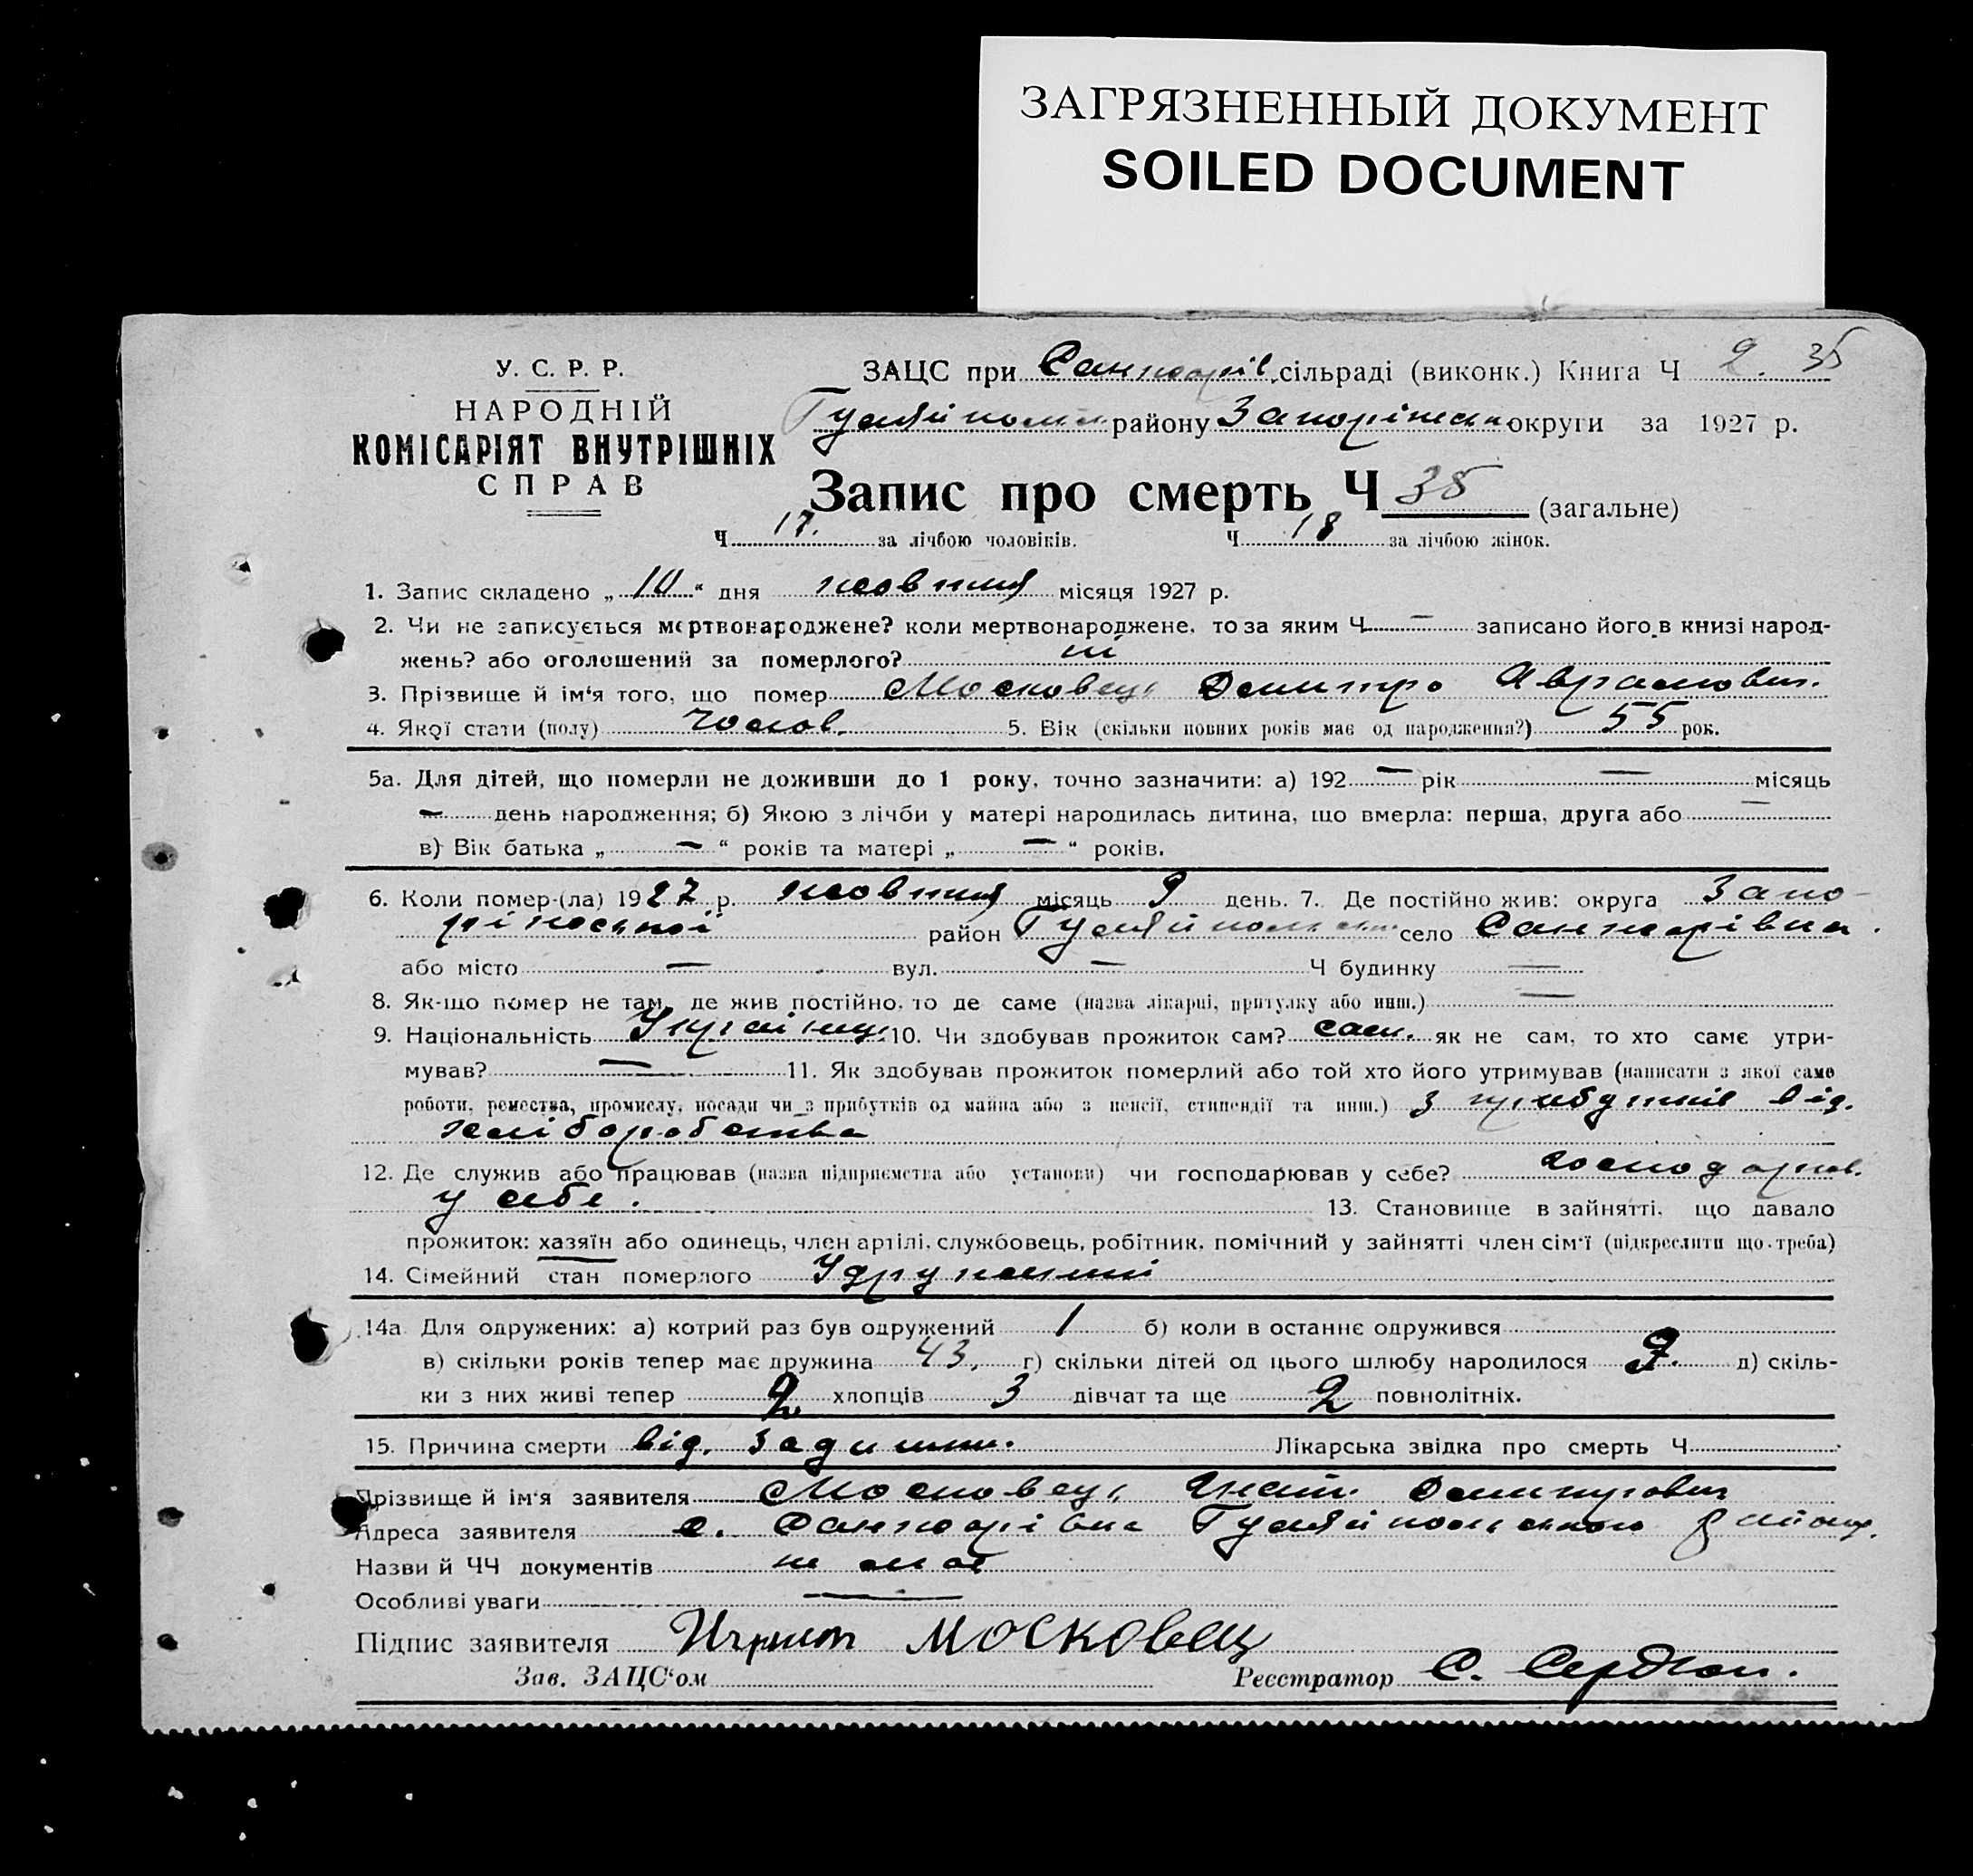 ЗАГРЯЗНЕННЫЙ ДОКУМЕНТ
SOILED DOCUMENT
У. С. Р. Р.
НАРОДНІЙ
КОМІСАРІЯТ ВНУТРІШНІХ
СПРАВ
ЗАЦС при Санжарів. сільраді (виконк.) Книга Ч 2. 35
Гуляйпольськ району Запоріжськ округи за 1927 р.
Запис про смерть Ч 35 (загальне)
Ч 17. за лічбою чоловіків. Ч 18 за лічбою жінок.
1. Запис складено „ 10 “ дня жовтня місяця 1927 р.
2. Чи не записується мертвонароджене? коли мертвонароджене, то за яким Ч — записано його в книзі народ-
жень? або оголошений за померлого? ні
3. Прізвище й ім‘я того, що помер Московець Дмитро Аврамович.
4. Якої стати (полу) Чолов. 5. Вік (скільки повних років має од народження?) 55 рок.
5а. Для дітей, що померли не доживши до 1 року, точно зазначити: а) 192 — рік — місяць
— день народження; б) Якою з лічби у матері народилась дитина, що вмерла: перша, друга або —
в) Вік батька „ — “ років та матері „ — “ років.
6. Коли помер-(ла) 1927 р. жовтня місяць 9 день. 7. Де постійно жив: округа Запо-
ріжської район Гуляйпольськ село Санжарівка.
або місто — вул. — Ч будинку —
8. Як-що помер не там, де жив постійно, то де саме (назва лікарні, притулку або инш.) —
9. Національність Українец. 10. Чи здобував прожиток сам? сам. як не сам, то хто саме утри-
мував? — 11. Як здобував прожиток померлий або той хто його утримував (написати з якої само
роботи, ремества, промислу, посади чи з прибутків од майна або з пенсії, стипендії та инш.) З прибутків від.
хліборобства
12. Де служив або працював (назва підприємства або установи) чи господарював у себе? господарюв.
у себе. 13. Становище в зайнятті, що давало
прожиток: хазяїн або одинець, член артілі, службовець, робітник, помічний у зайнятті член сім‘ї (підкреслити що-треба)
14. Сімейний стан померлого Удружений
14а Для одружених: а) котрий раз був одружений 1 б) коли в останнє одружився
в) скільки років тепер має дружина 43, г) скільки дітей од цього шлюбу народилося 7. д) скіль-
ки з них живі тепер 2 хлопців 3 дівчат та ще 2 повнолітніх.
15. Причина смерти від. задишки. Лікарська звідка про смерть Ч
Прізвище й ім‘я заявителя Московець Гнат. Дмитрович
Адреса заявителя с. Санжарівка Гуляйпольського району.
Назви й ЧЧ документів не має
Особливі уваги —
Підпис заявителя Игрнат Московец
Зав. ЗАЦС‘ом Реєстратор С. Сердюк.